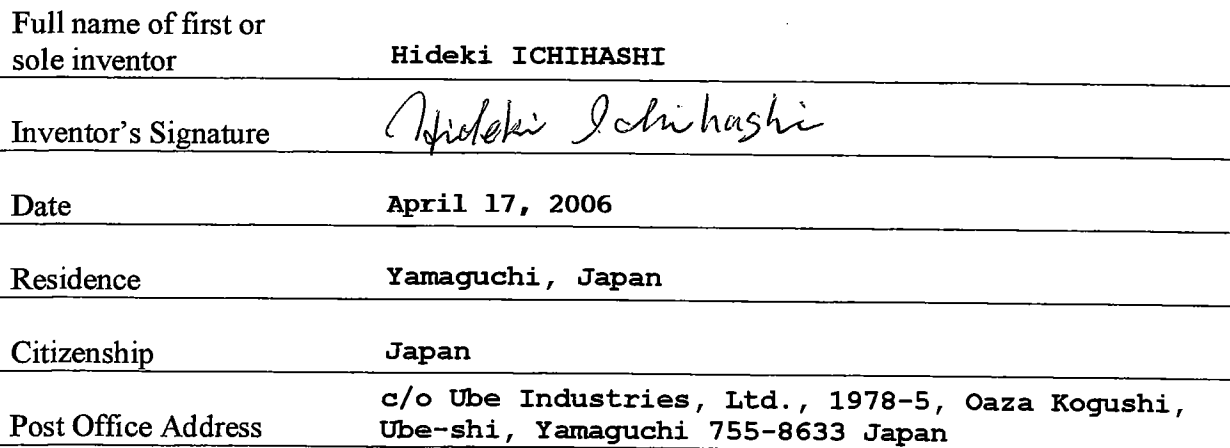 Full name of first or
sole inventor Hideki ICHIHASHI
Inventor's Signature Hideki Ichihashi
Date April 17, 2006
Residence Yamaguchi, Japan
Citizenship Japan
c/o Ube Industries, Ltd., 1978-5, Oaza Kogushi,
Post Office Address Ube-shi, Yamaguchi 755-8633 Japan